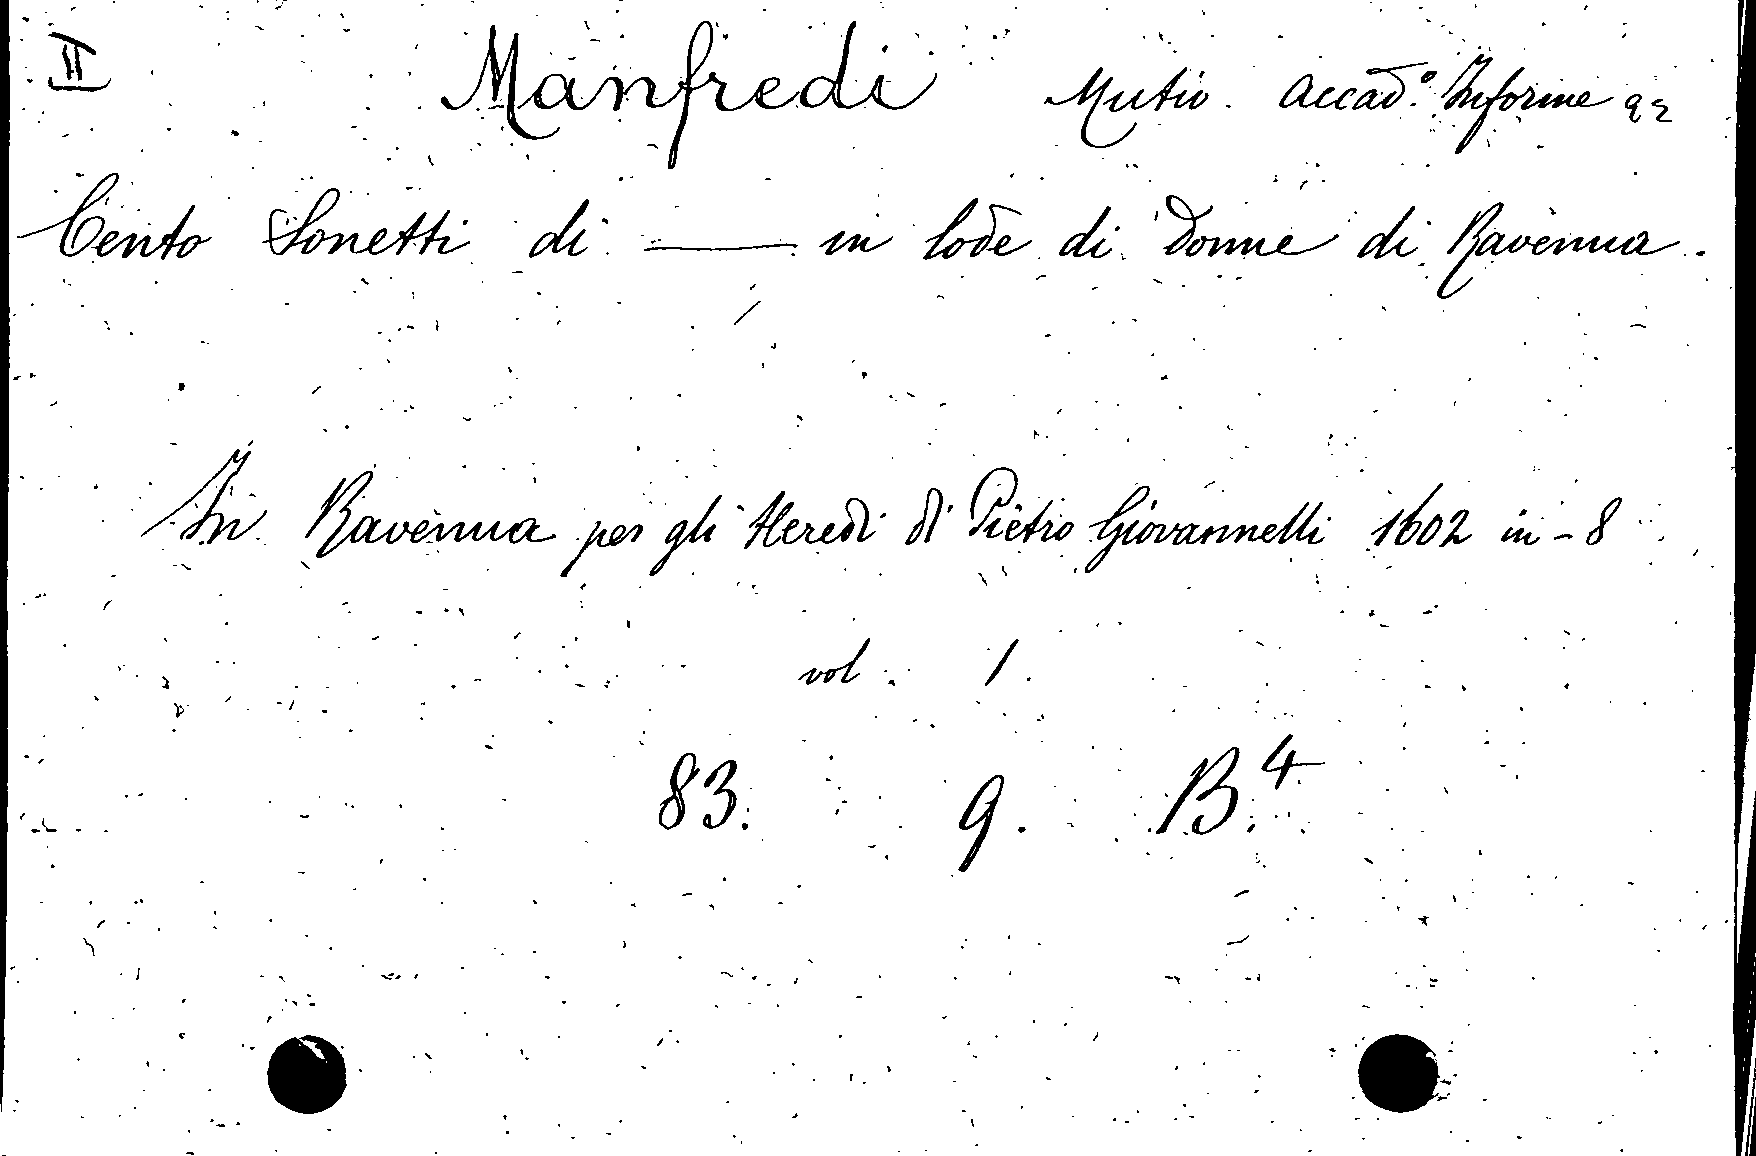 II Manfredi Mutio. Accad.º Informe
Cento Sonetti di ——— in lode di Donne di Ravenna.
In Ravenna per gli Heredi di Pietro Giovannelli 1602 in-8
vol. 1.
83. 9. B.4